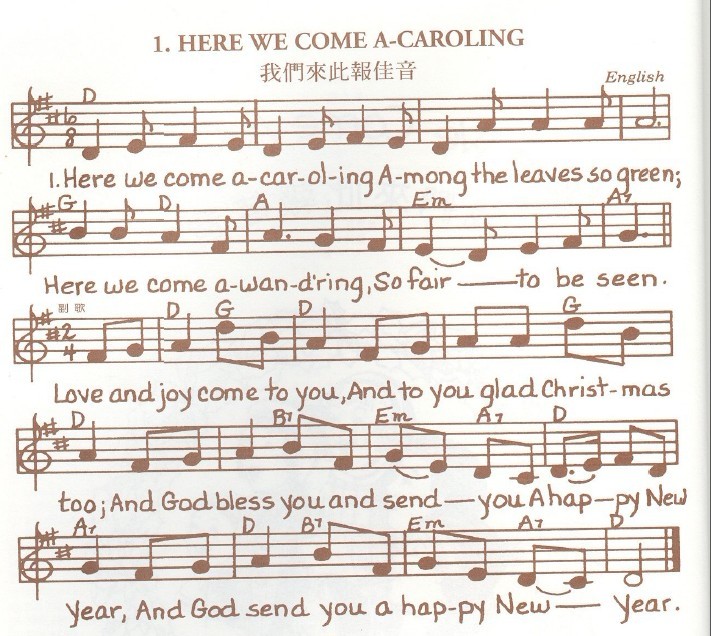 1. HERE WE COME A-CAROLING
我們來此報佳音
English
D
6
8
1. Here we come a-car-ol-ing A-mong the leaves so green;
G D A Em A7
Here we come a-wan-d'ring, So fair — to be seen.
副歌
D G D G
2
4
Love and joy come to you, And to you glad Christ-mas
D B7 Em A7 D
too; And God bless you and send — you A hap-py New
A7 D B7 Em A7 D
Year, And God send you a hap-py New — Year.